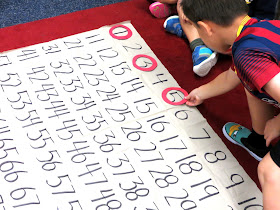 1 2 3 4 5 6 7 8 9
11 12 13 14 15 16 17 18 19
21 22 23 24 25 26 27 28 29
31 32 33 34 35 36 37 38
41 42 43 44 45 46 47 48
52 53 54 55 56 57
65 66 67